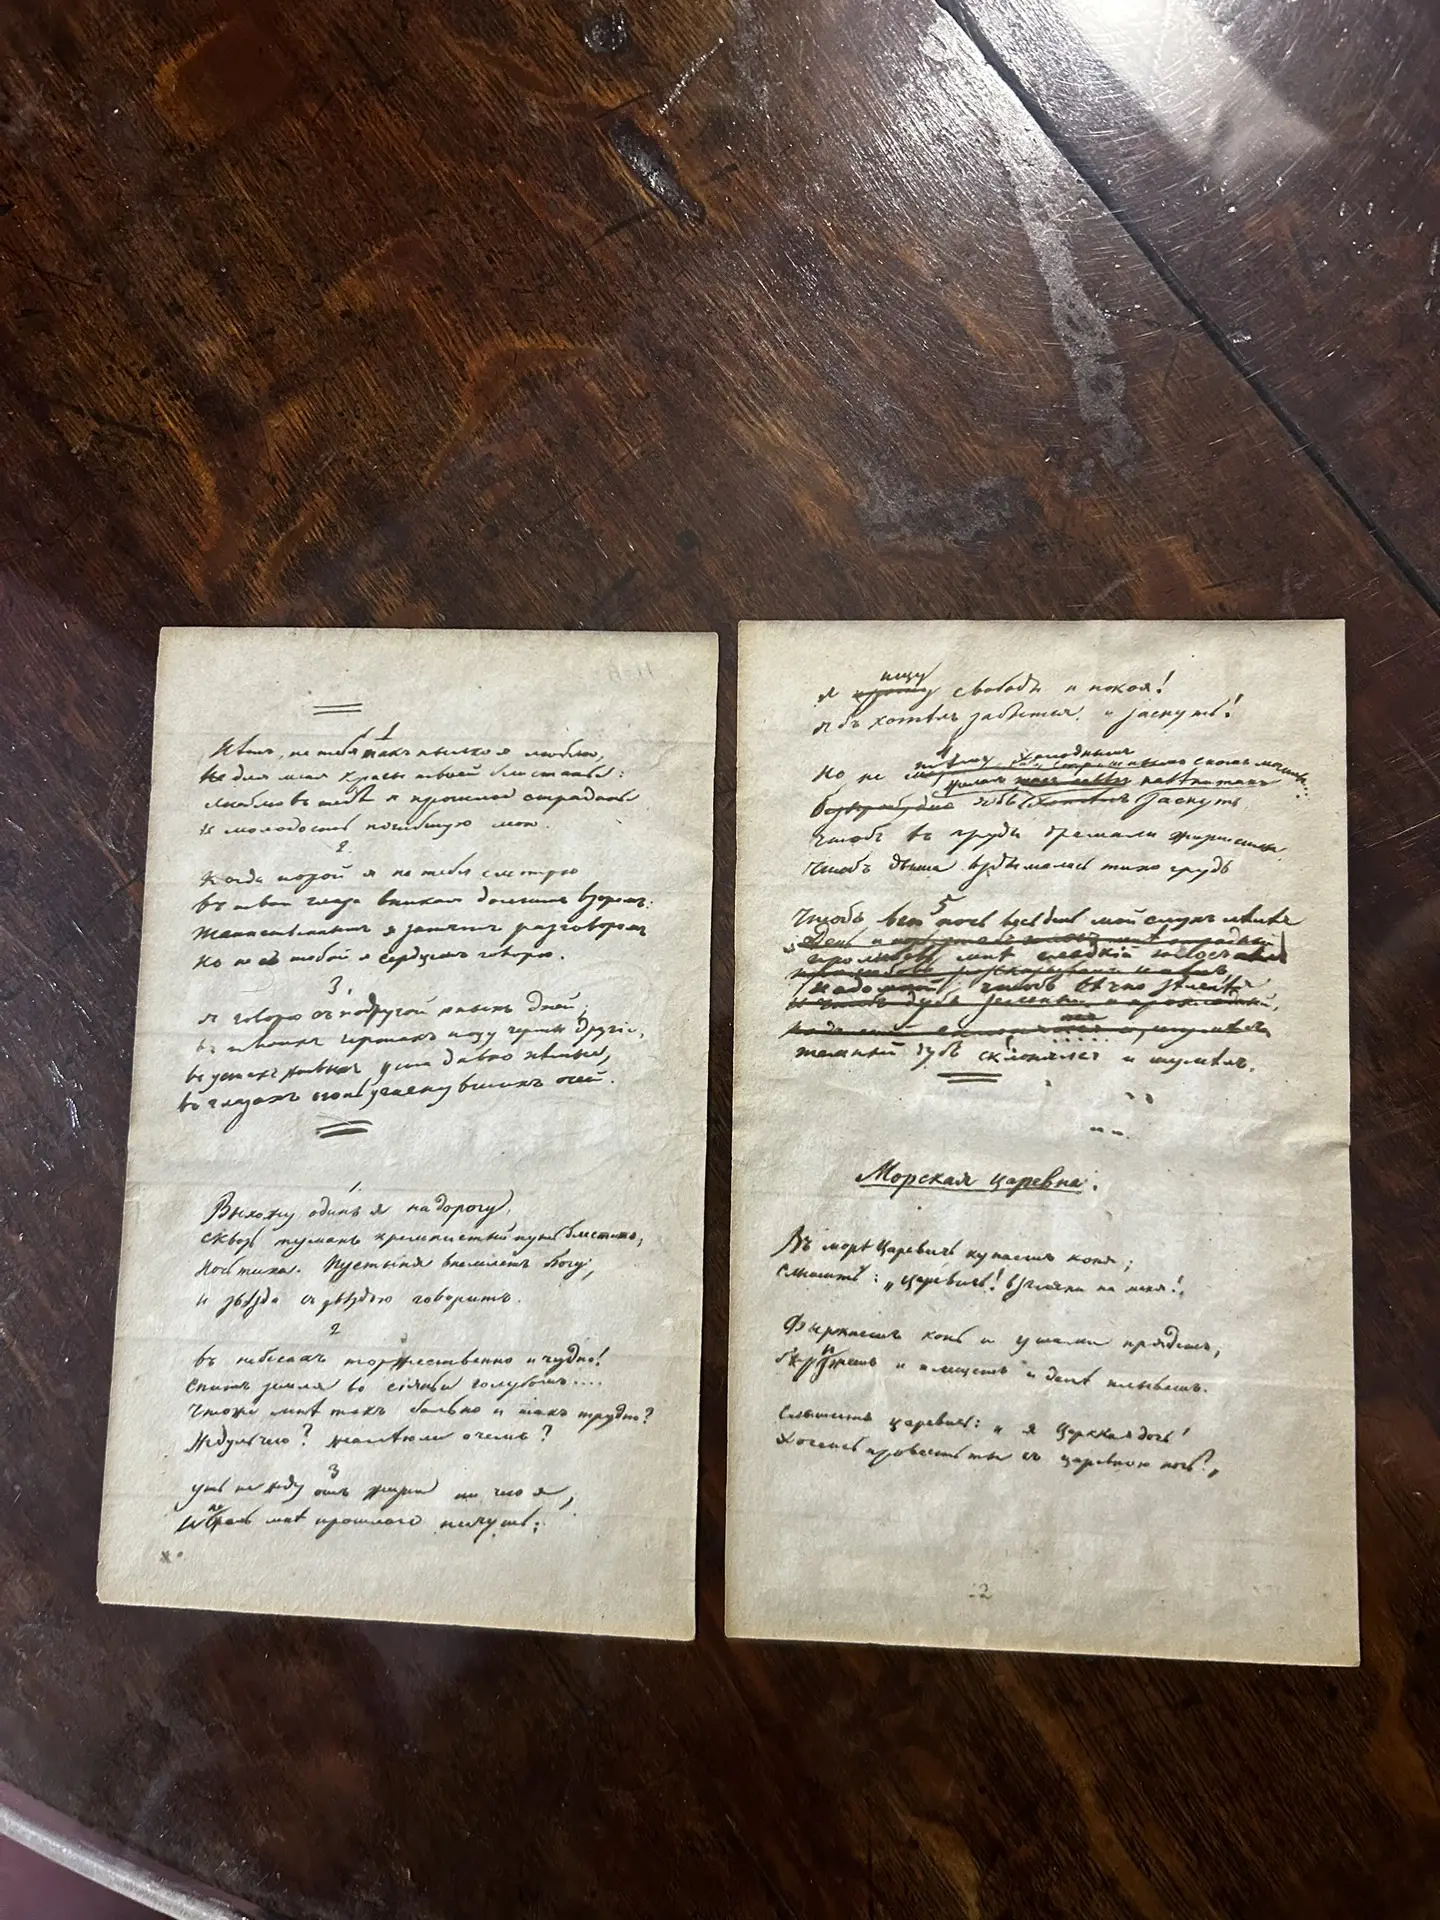 1
Нѣтъ, не тебя такъ пылко я люблю,
Не для меня красы твоей блистанье:
Люблю въ тебѣ я прошлое страданье
И молодость погибшую мою.
2.
Когда порой я на тебя смотрю
Въ твои глаза вникая долгимъ взоромъ:
Таинственнымъ я занятъ разговоромъ
Но не съ тобой я сердцемъ говорю.
3.
Я говорю съ подругой юныхъ дней;
въ твоихъ чертахъ ищу черты другія,
въ устахъ живыхъ уста давно нѣмые,
въ глазахъ огонь угаснувшихъ очей.
1
Выхожу одинъ я на дорогу,
сквозь туманъ кремнистый путь блеститъ,
Ночь тиха. Пустыня внемлетъ Богу,
и звѣзда съ звѣздою говоритъ.
2
въ небесахъ торжественно и чудно!
Спитъ земля во сіяньи голубомъ....
Чтоже мнѣ такъ больно и такъ трудно?
Жду ль чего? жалѣю ли о чемъ?
3
ужъ не жду отъ жизни ничего я,
И не жаль мнѣ прошлаго ничуть;
ищу
Я свободы и покоя!
Я бъ хотѣлъ забыться и заснуть!
4
холоднымъ сномъ могилы...
Но не
я бъ заснуть
Чтобъ въ груди дремали жизни силы
Чтобъ дыша вздымалась тихо грудь
5
Чтобъ всю ночь весь день мой слухъ лелѣя
про любовь мнѣ сладкій голосъ
надо мной чтобъ вѣчно зеленѣя
темный дубъ склонялся и шумѣлъ.
Морская царевна.
Въ морѣ Царевичь купаетъ коня;
Слышитъ: „Царевичь! взгляни на меня!„
Фыркаетъ конь и ушами прядетъ,
брызжетъ и плещетъ и далѣ плыветъ.
Слышитъ царевичь: „я Царская дочь!
Хочешь провесть ты съ царевною ночь?„
2